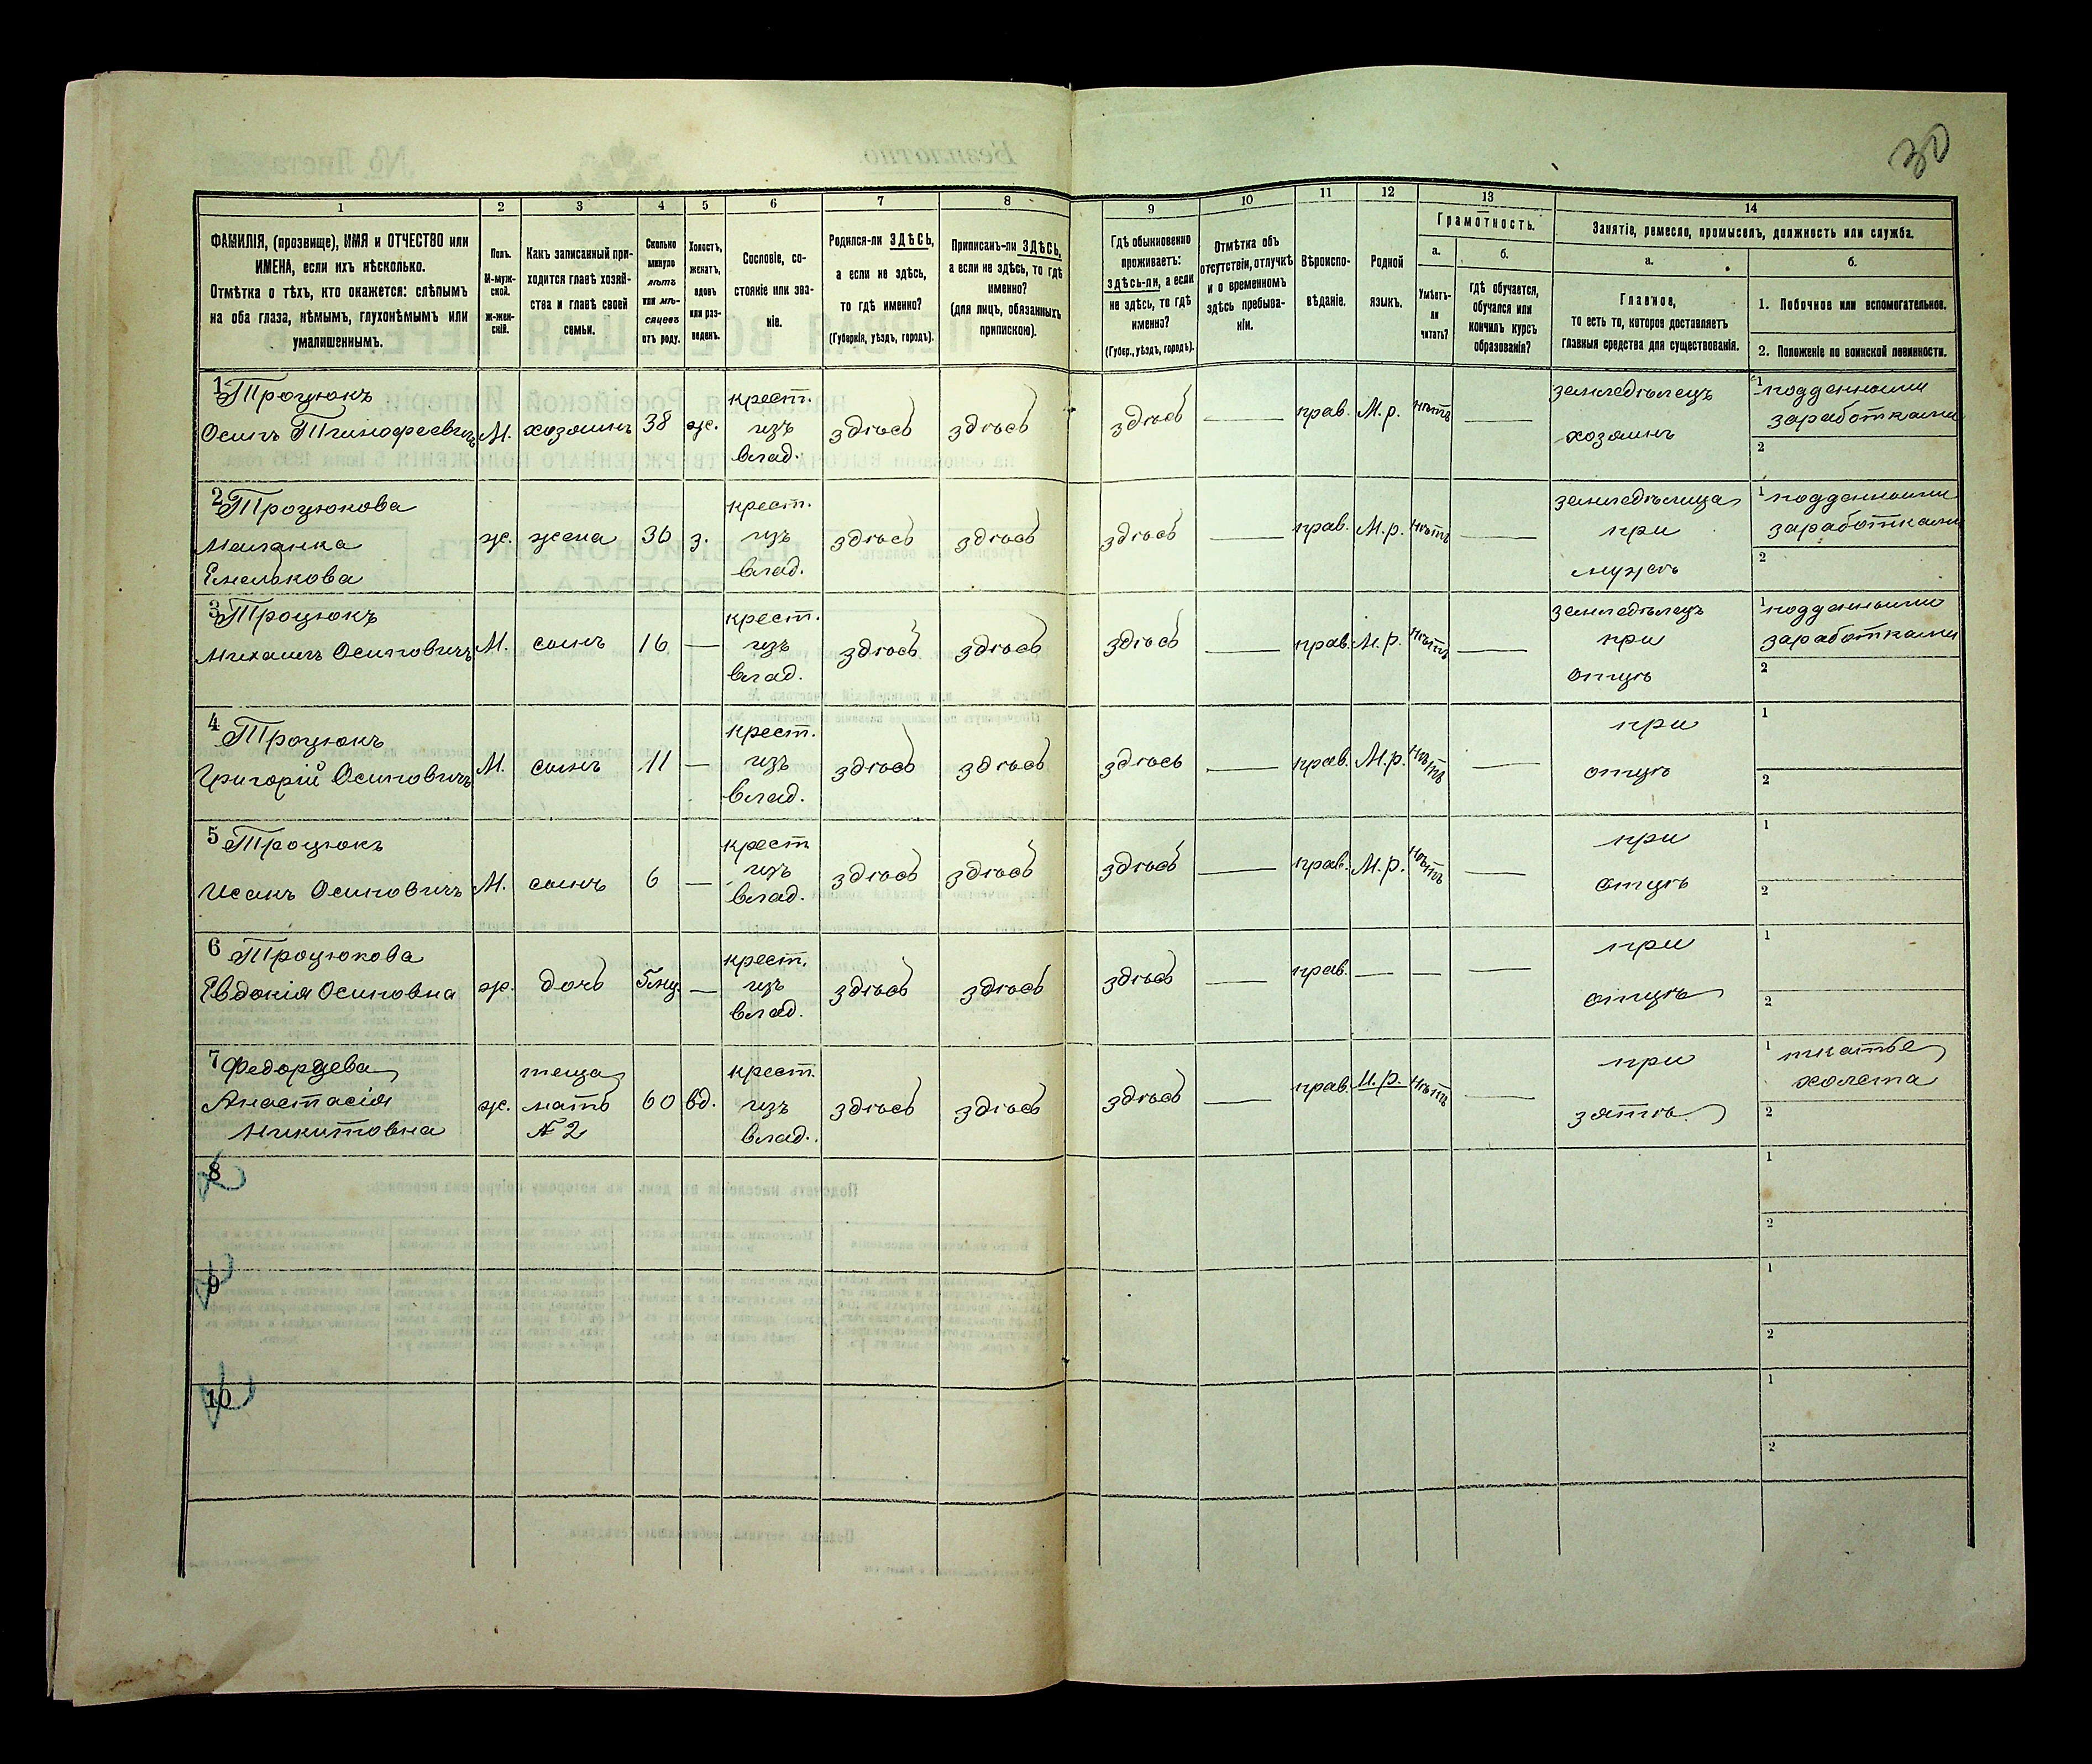 30
1 2 3 4 5 6 7 8 9 10 11 12 13 14
ФАМИЛІЯ, (прозвище), ИМЯ и ОТЧЕСТВО или
ИМЕНА, если ихъ нѣсколько.
Отмѣтка о тѣхъ, кто окажется: слѣпымъ
на оба глаза, нѣмымъ, глухонѣмымъ или
умалишеннымъ.
Полъ.
М-муж-
ской.
Ж-жен-
скій.
Какъ записанный при-
ходится главѣ хозяй-
ства и главѣ своей
семьи.
Сколько
минуло
лѣтъ
или мѣ-
сяцевъ
отъ роду.
Холостъ,
женатъ,
вдовъ
или раз-
веденъ.
Сословіе, со-
стояніе или зва-
ніе.
Родился-ли ЗДѢСЬ,
а если не здѣсь,
то гдѣ именно?
(Губернія, уѣздъ, городъ).
Приписанъ-ли ЗДѢСЬ,
а если не здѣсь, то гдѣ
именно?
(для лицъ, обязанныхъ
припискою).
Гдѣ обыкновенно
проживаетъ:
здѣсь-ли, а если
не здѣсь, то гдѣ
именно?
(Губер., уѣздъ, городъ).
Отмѣтка объ
отсутствіи, отлучкѣ
и о временномъ
здѣсь пребыва-
ніи.
Вѣроиспо-
вѣданіе.
Родной
языкъ.
Грамотность.
а.
Умѣетъ-
ли
читать?
б.
гдѣ обучается,
обучался или
кончилъ курсъ
образованія?
Занятіе, ремесло, промыселъ, должность или служба.
а.
Главное,
то есть то, которое доставляетъ
главныя средства для существованія.
б.
1. Побочное или вспомогательное.
2. Положеніе по воинской повинности.
1 Троцюкъ
Осипъ Тимофеевичъ М. хозяинъ 38 ж. крест. изъ влад. здѣсь здѣсь здѣсь — прав. М.р. нѣтъ — земледѣлецъ хозяинъ 1 подденными заработками
2
2 Троцюкова
Маланка
Емелькова ж. жена 36 з. крест. изъ влад. здѣсь здѣсь здѣсь — прав. М.р. нѣтъ — земледѣлица при мужѣ 1 подденными заработками
2
3 Троцюкъ
Михаилъ Осиповичъ М. сынъ 16 — крест. изъ влад. здѣсь здѣсь здѣсь — прав. М.р. нѣтъ — земледѣлецъ при отцѣ 1 подденными заработками
2
4 Троцюкъ
Григорій Осиповичъ М. сынъ 11 — крест. изъ влад. здѣсь здѣсь здѣсь — прав. М.р. нѣтъ — при отцѣ 1
2
5 Троцюкъ
Исакъ Осиповичъ М. сынъ 6 — крест. изъ влад. здѣсь здѣсь здѣсь — прав. М.р. нѣтъ — при отцѣ 1
2
6 Троцюкова
Евдокія Осиповна ж. дочь 5 мц. — крест. изъ влад. здѣсь здѣсь здѣсь — прав. — — — при отцѣ 1
2
7 Федорцева
Анастасія
Микитовна ж. теща мать № 2 60 вд. крест. изъ влад. здѣсь здѣсь здѣсь — прав. М.р. нѣтъ — при зятѣ 1 тнатье холста
2
8 1
2
9 1
2
10 1
2